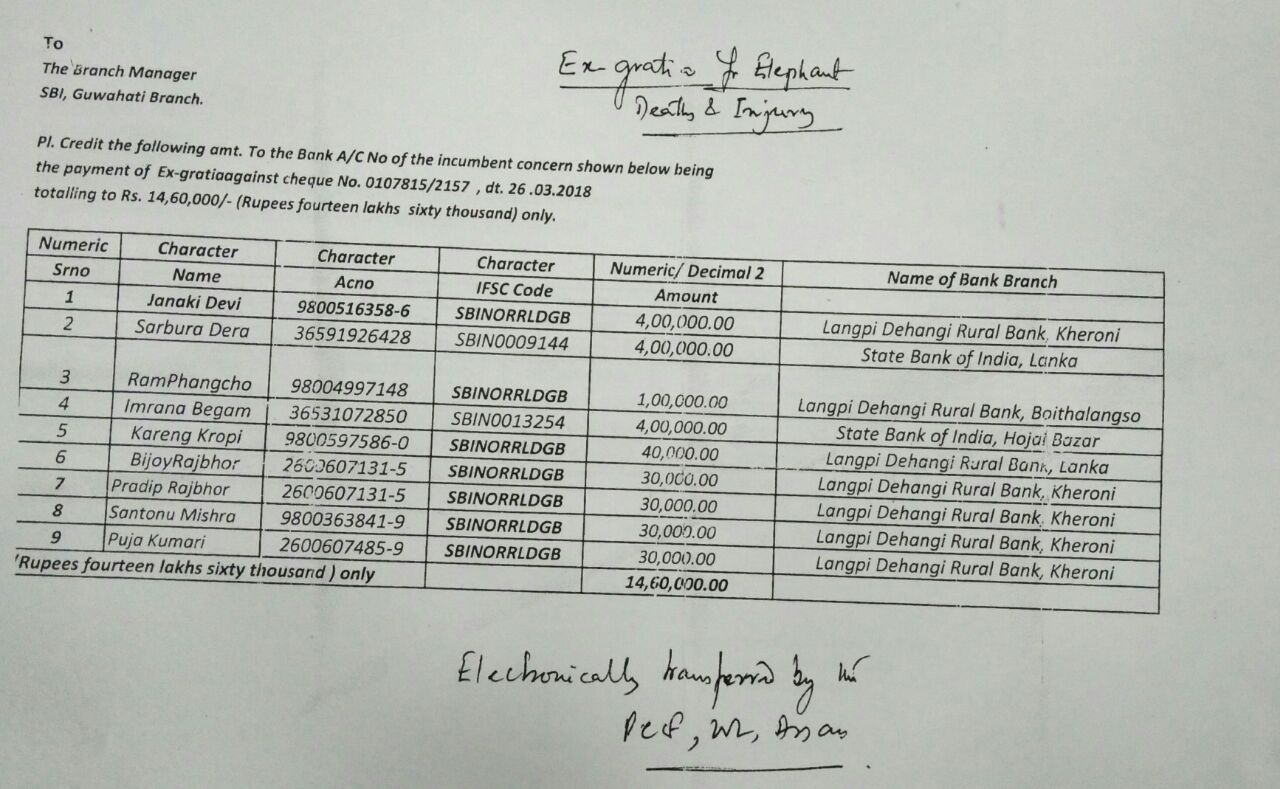 To
The Branch Manager
SBI, Guwahati Branch.
Ex-gratia for Elephant
Death & Injury
Pl. Credit the following amt. To the Bank A/C No of the incumbent concern shown below being
the payment of Ex-gratiaagainst cheque No. 0107815/2157 , dt. 26 .03.2018
totalling to Rs. 14,60,000/- (Rupees fourteen lakhs sixty thousand) only.
Numeric Character Character Character Numeric/ Decimal 2 Name of Bank Branch
Srno Name Acno IFSC Code Amount
1 Janaki Devi 9800516358-6 SBINORRLDGB 4,00,000.00 Langpi Dehangi Rural Bank, Kheroni
2 Sarbura Dera 36591926428 SBIN0009144 4,00,000.00 State Bank of India, Lanka
3 RamPhangcho 98004997148 SBINORRLDGB 1,00,000.00 Langpi Dehangi Rural Bank, Boithalangso
4 Imrana Begam 36531072850 SBIN0013254 4,00,000.00 State Bank of India, Hojai Bazar
5 Kareng Kropi 9800597586-0 SBINORRLDGB 40,000.00 Langpi Dehangi Rural Bank, Lanka
6 BijoyRajbhor 2600607131-5 SBINORRLDGB 30,000.00 Langpi Dehangi Rural Bank, Kheroni
7 Pradip Rajbhor 2600607131-5 SBINORRLDGB 30,000.00 Langpi Dehangi Rural Bank, Kheroni
8 Santonu Mishra 9800363841-9 SBINORRLDGB 30,000.00 Langpi Dehangi Rural Bank, Kheroni
9 Puja Kumari 2600607485-9 SBINORRLDGB 30,000.00 Langpi Dehangi Rural Bank, Kheroni
(Rupees fourteen lakhs sixty thousand ) only 14,60,000.00
Electronically transferred by
PCCF, WL, Assam